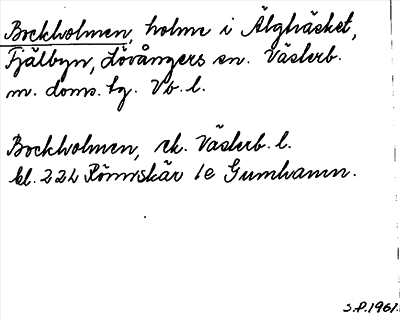 Bockholmen, holme i Älghäsket,
Fjälbyn, Lövångers sn. Västerb.
m. doms. tg. Vb. l.
Bockholmen, ek. Västerb. l.
bl. 22L Rönnskär 1e Gumhamn.
S.P.1961.